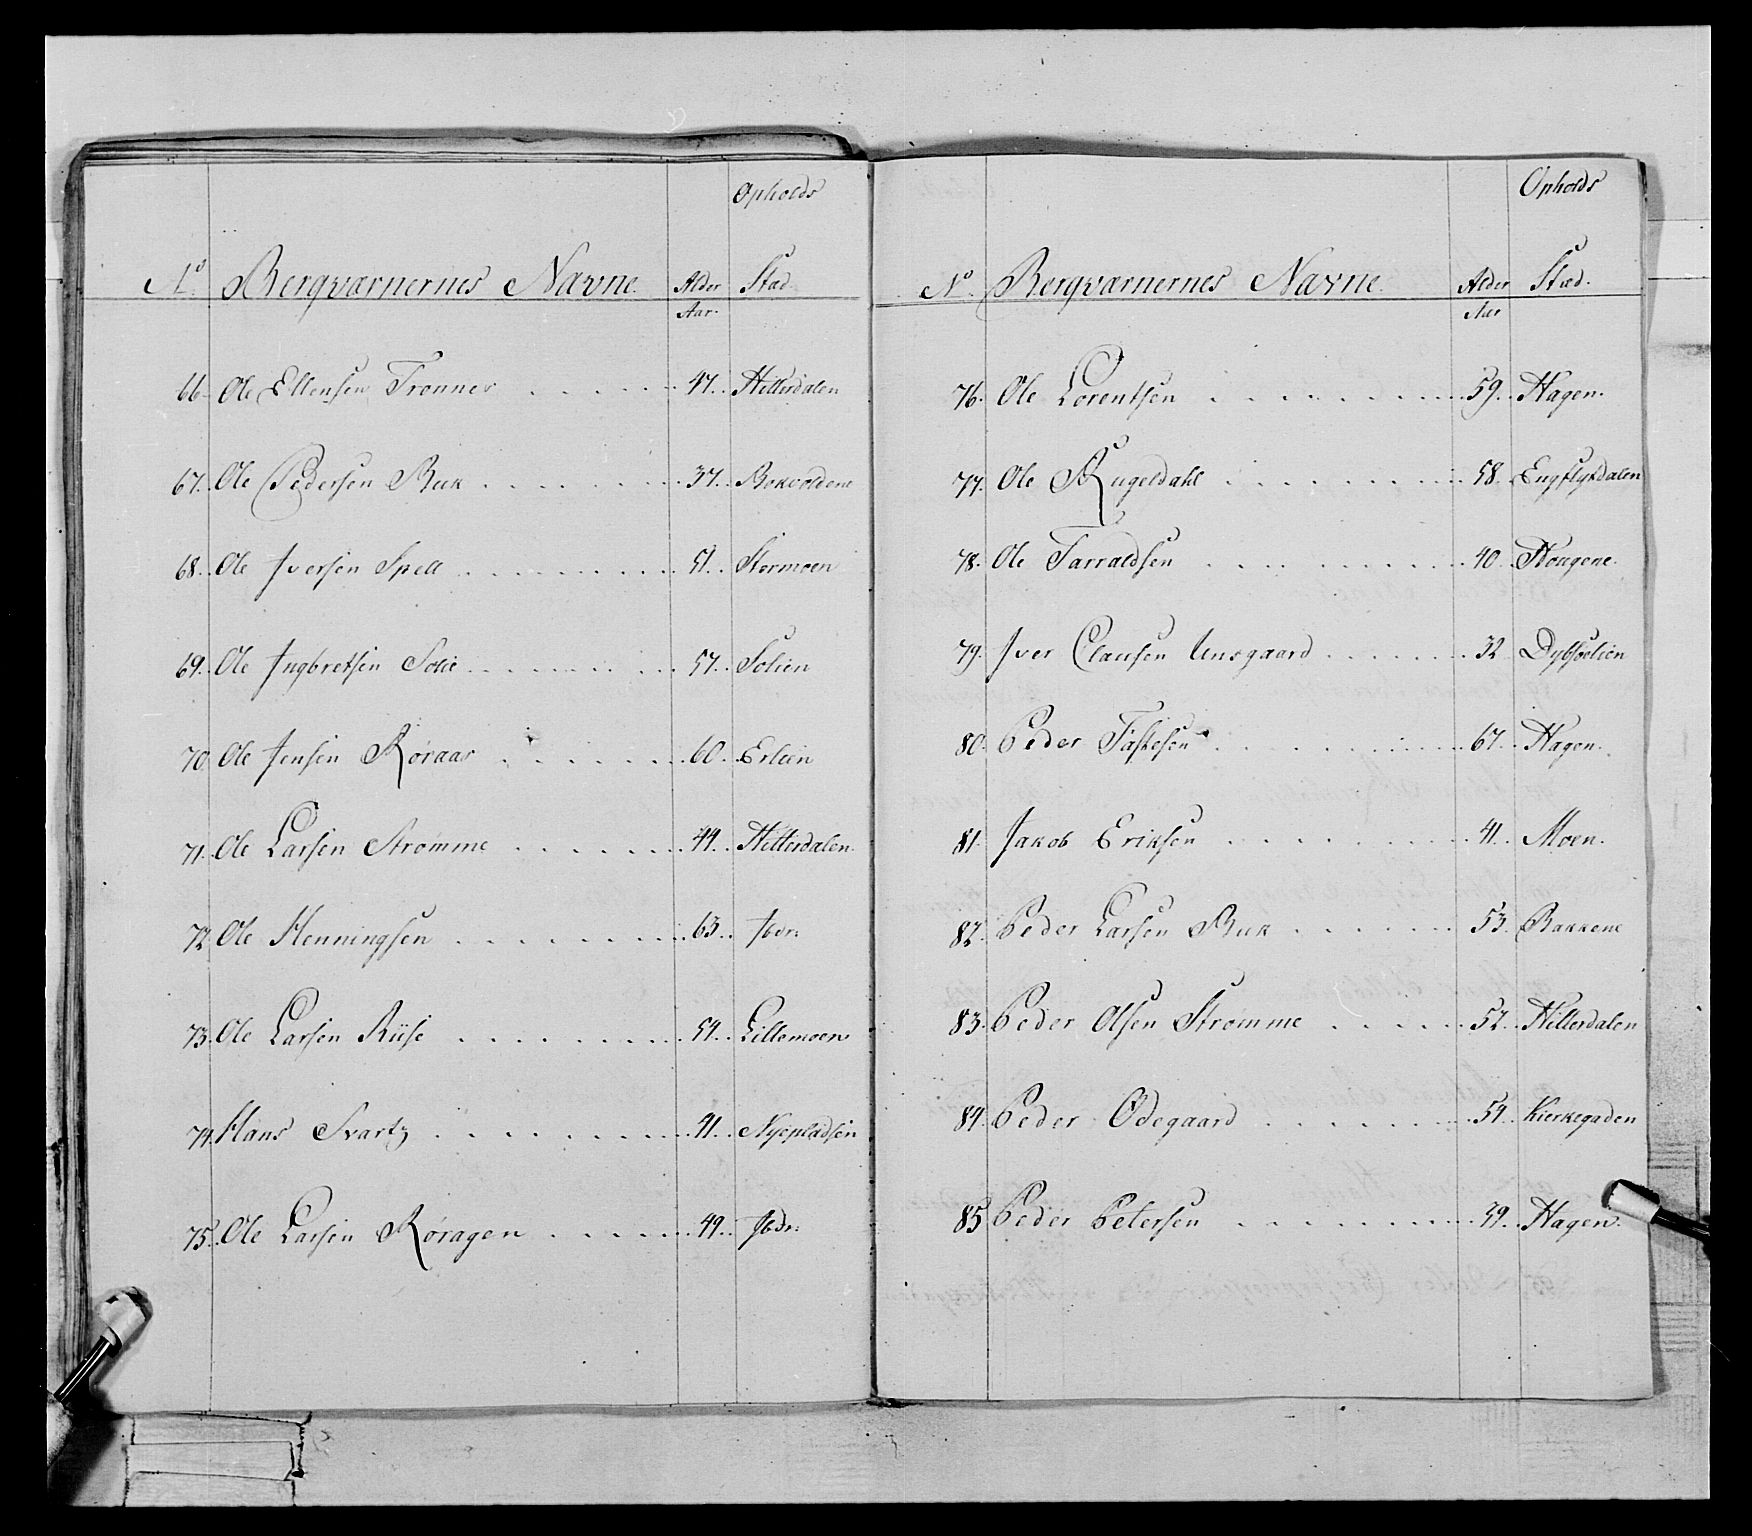 Opholds
No Bergværnernes Navne. Alder Stæd.
Aar.
66. Ole Ellensen Trønnes 47. Hitterdalen
67. Ole Pedersen Ruk 37. Bekvoldene
68. Ole Iversen Spell 51. Stormoen
69. Ole Ingbretsen Solie 57. Solien
70 Ole Jensen Røraas 60. Erlien
71. Ole Larsen Strømme 44. Hitterdalen.
72. Ole Henningsen 63. Ibdn:
73. Ole Larsen Riise 54. Lillemoen
74. Hans Svartz 41. Nyepladsen
75. Ole Larsen Røragen 49. Ibdn:
Opholds
No. Bergværnernes Navne. Alder Stæd.
Aar
76. Ole Lorentsen 59. Hagen.
77. Ole Kugeldahl 58. Engflykdalen
78. Ole Tarraldsen 40. Hougene.
79. Iver Clausen Unsgaard 32 Dybsølien
80. Peder Taskesen 67. Hagen.
81. Jakob Eriksen 41. Moen.
82. Peder Larsen Ruk 53. Bakkene
83. Peder Olsen Strømme 52. Hitterdalen
84. Peder Ødegaard 54. Kierkegaden
85 Peder Petersen 39. Hagen.